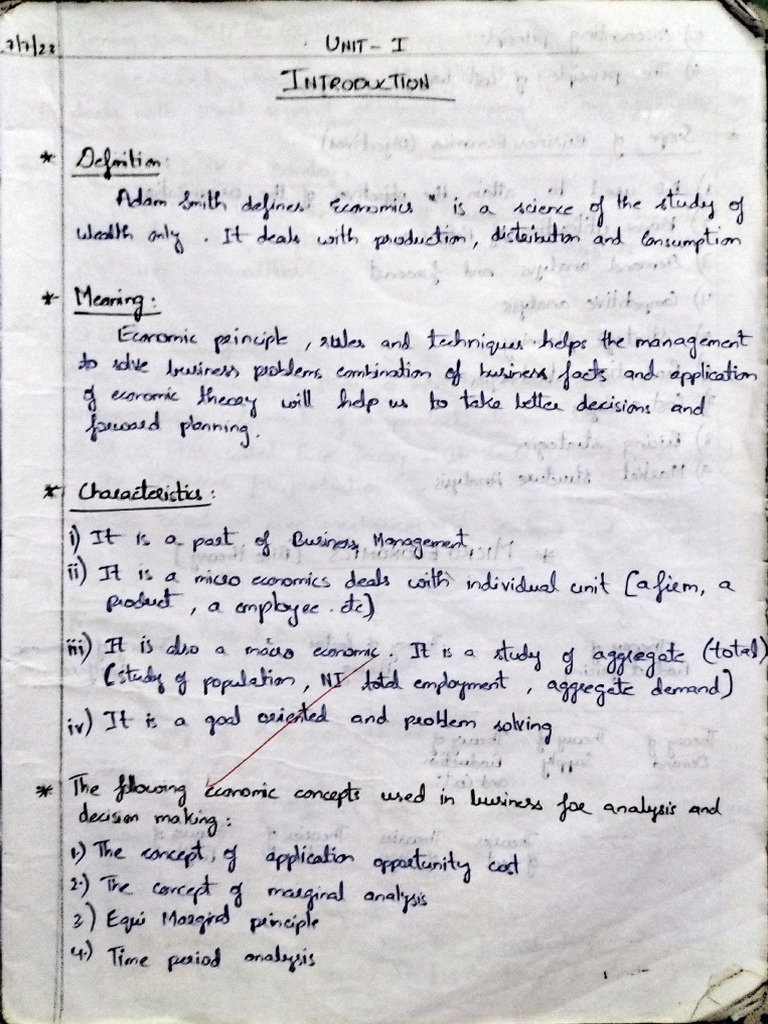 7/7/23
UNIT - I
INTRODUCTION
* Definition:
Adam Smith defines "Economics" is a science of the study of
wealth only. It deals with production, distribution and Consumption
* Meaning:
Economic principle, rules and techniques helps the management
to solve business problems, combination of business facts and application
of economic theory will help us to take better decisions and
forward planning.
* Characteristics:
i) It is a part of Business Management
ii) It is a micro economics deals with individual unit (a firm, a
product, a employee. etc)
iii) It is also a macro economic. It is a study of aggregate (total)
(study of population, NI total employment, aggregate demand)
iv) It is a goal oriented and problem solving
* The following economic concepts used in business for analysis and
decision making:
1.) The concept of application opportunity cost
2.) The concept of marginal analysis
3) Equi Marginal principle
4.) Time period analysis